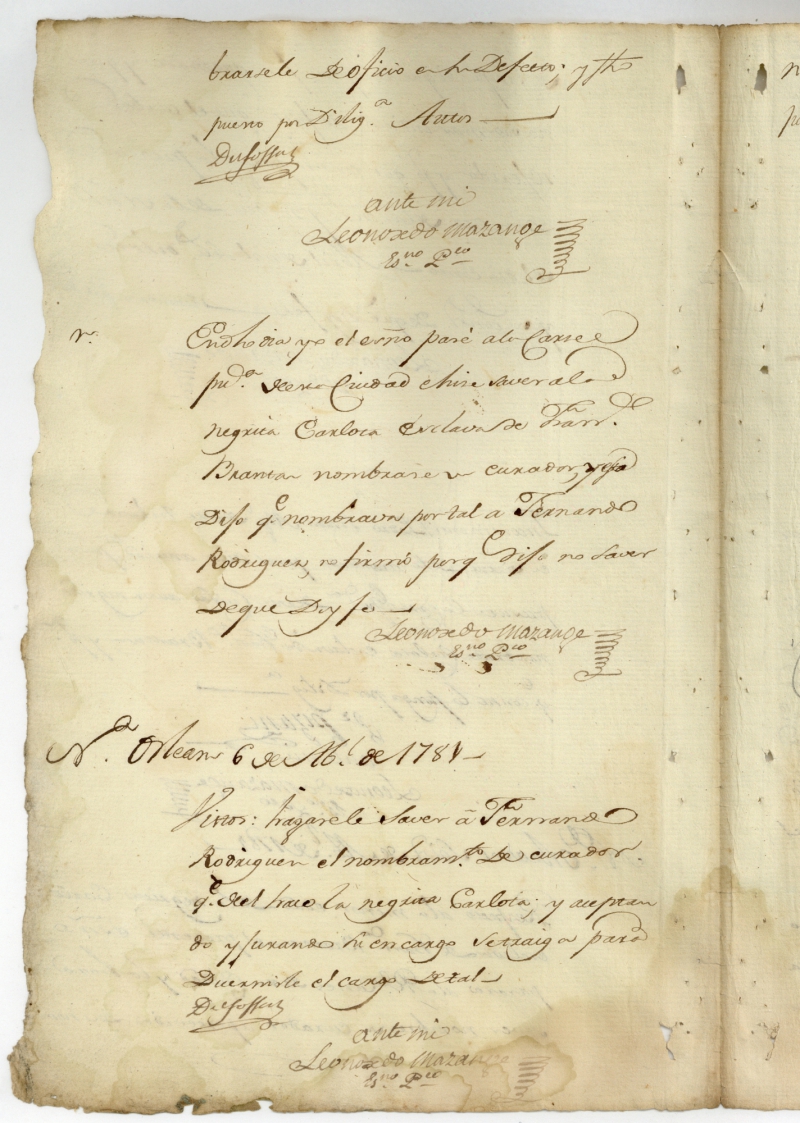 brarsele de oficio en su defecto; y fho
puesto por Dilig.a Autos
Dufossat
ante mi
Leonardo Mazange
Es.no P.co
n.
En dho dia yo el esno pasé a la Carcel
pu.ca de esta Ciudad e hize saver a la
negrita Carlota esclava de Fran.co
nombrase un curador, y
Dijo q.e nombrava por tal a Fernando
Rodriguez, no firmó porq.e dijo no saver
de que Doy fe
Leonardo Mazange
Es.no P.co
N.a Orleans 6 de Ab.l de 1781
Vistos: hagasele saver a Fernando
Rodriguez el nombram.to de curador
q.e de el hace la negrita Carlota; y aceptan
do y jurando su encargo se traiga para
Dicernirle el cargo de tal
Dufossat
ante mi
Leonardo Mazange
Es.no P.co